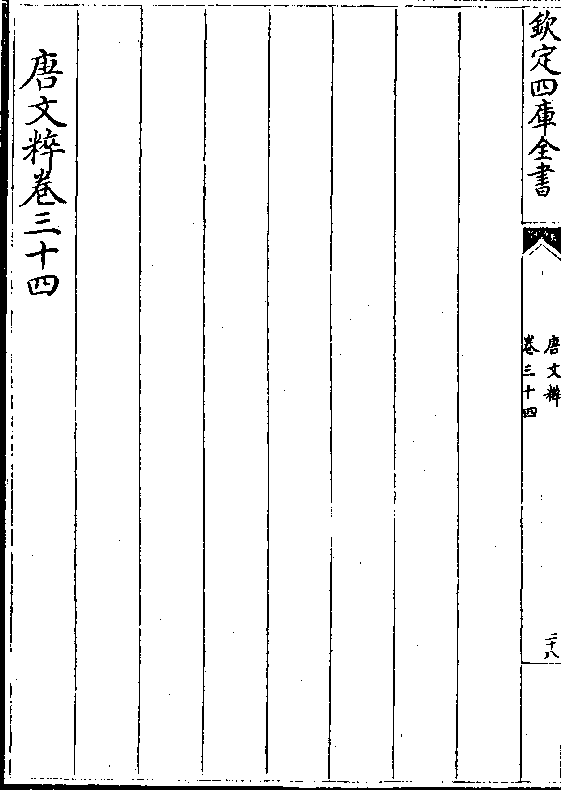 欽定四庫全書
唐文粹
卷三十四
二十八
唐文粹卷三十四